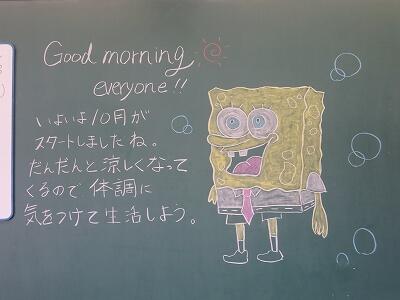 Good morning
everyone!!
いよいよ10月が
スタートしましたね。
だんだんと涼しくなって
くるので 体調に
気をつけて生活しよう。